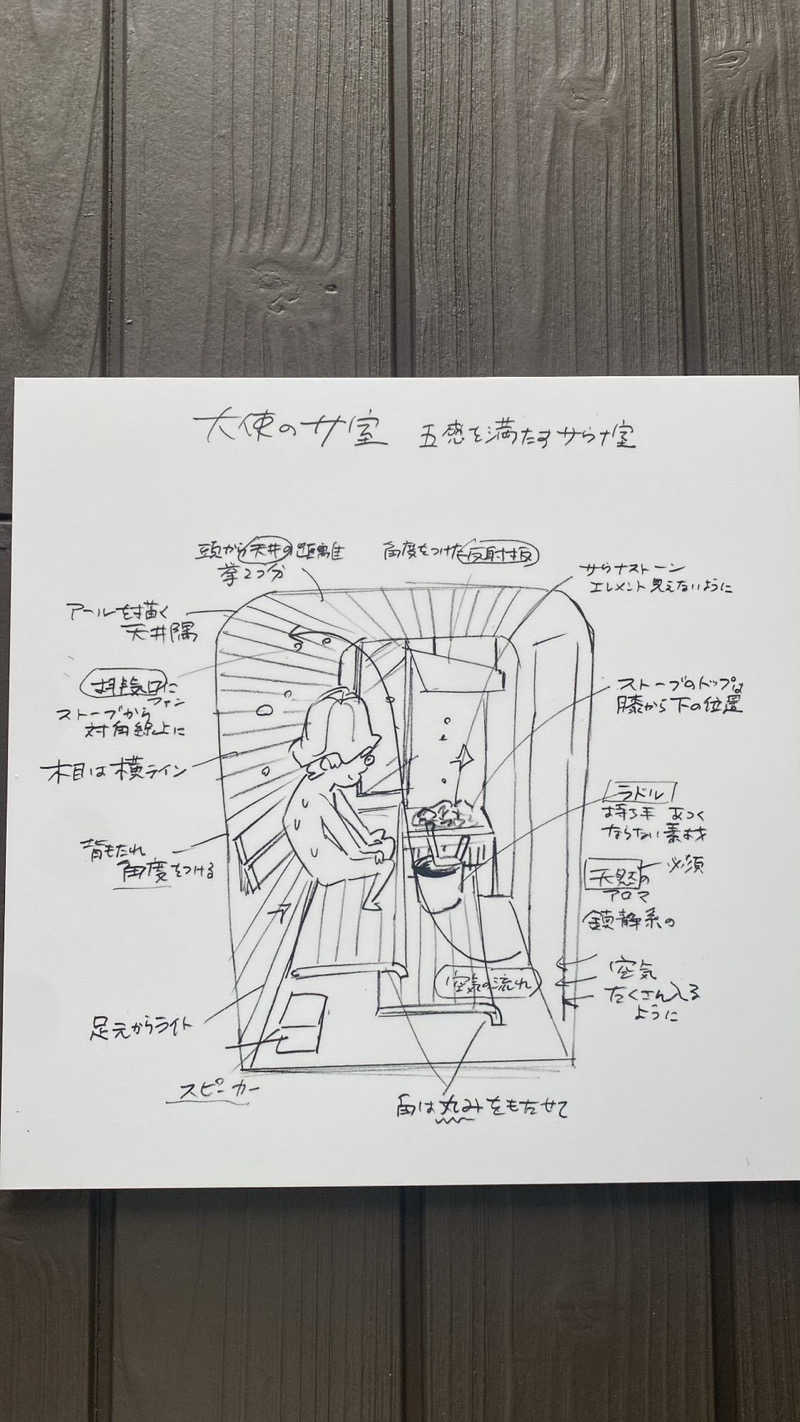 大使のサ室 五感を満たすサウナ室
頭から天井の距離
拳2つ分
角度をつけた反射板
サウナストーン
エレメント見えないように
アールを描く
天井隅
排気口に
ファン
ストーブから
対角線上に
ストーブのトップは
膝から下の位置
木目は横ライン
ラドル
持ち手 あつく
ならない素材
背もたれ
角度をつける
必須
天然の
アロマ
鎮静系の
空気の流れ
空気
たくさん入る
ように
足元からライト
スピーカー
角は丸みをもたせて